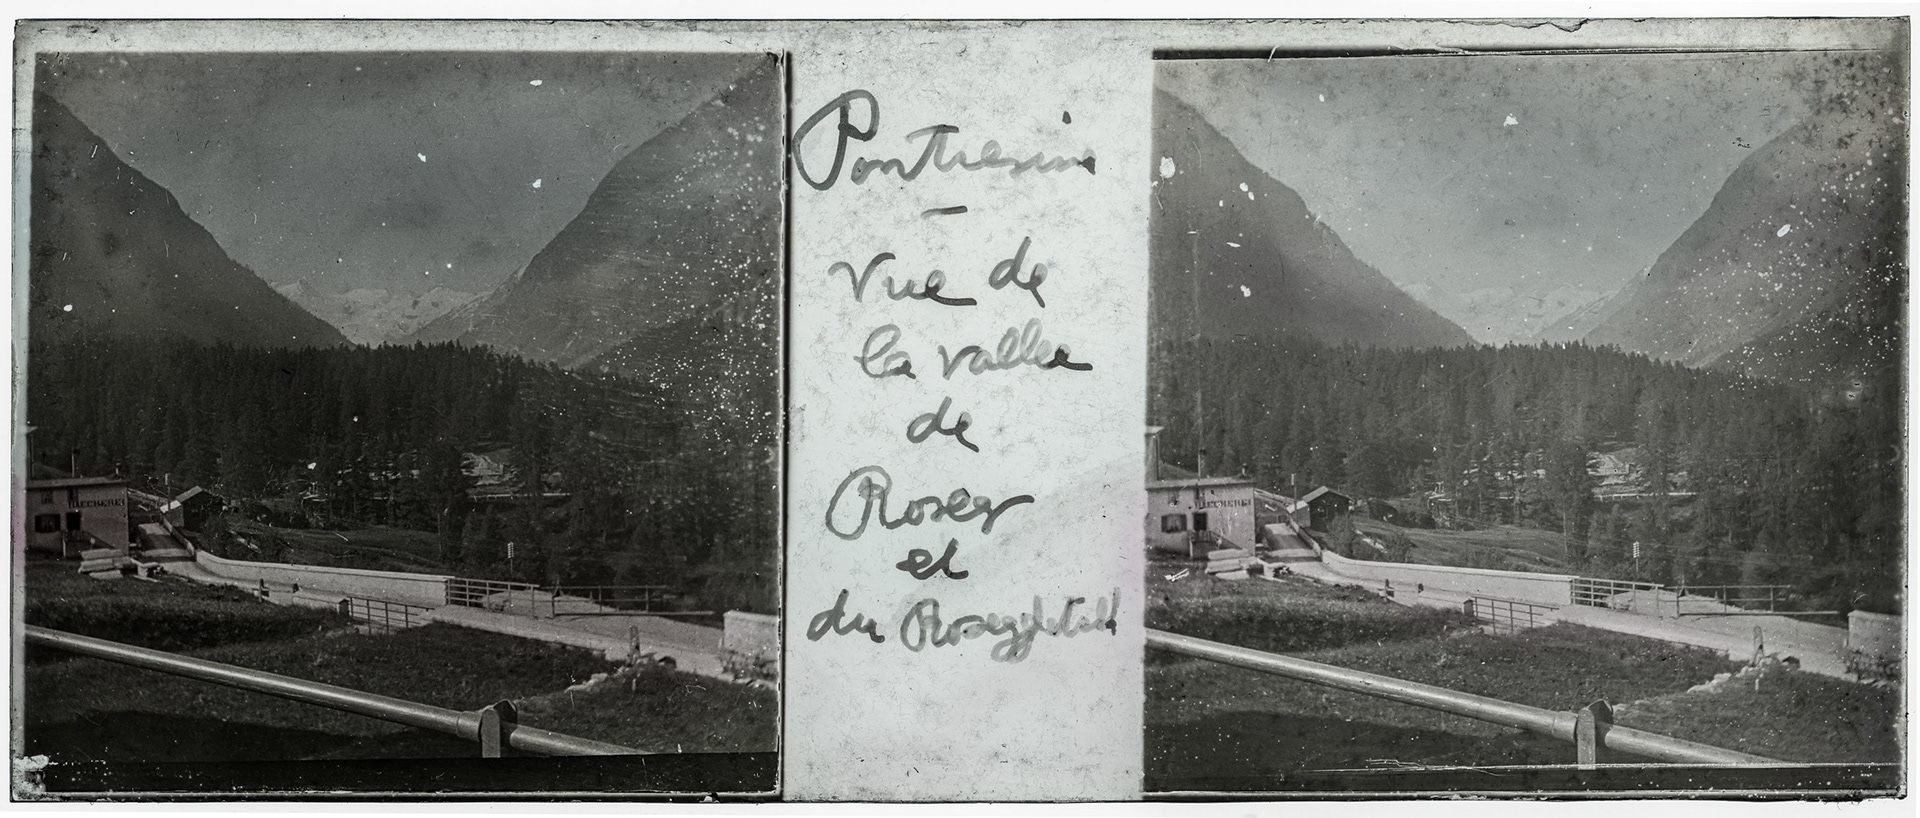 Pontresina
–
Vue de
la vallée
de
Roseg
et
du
BÆCKEREI